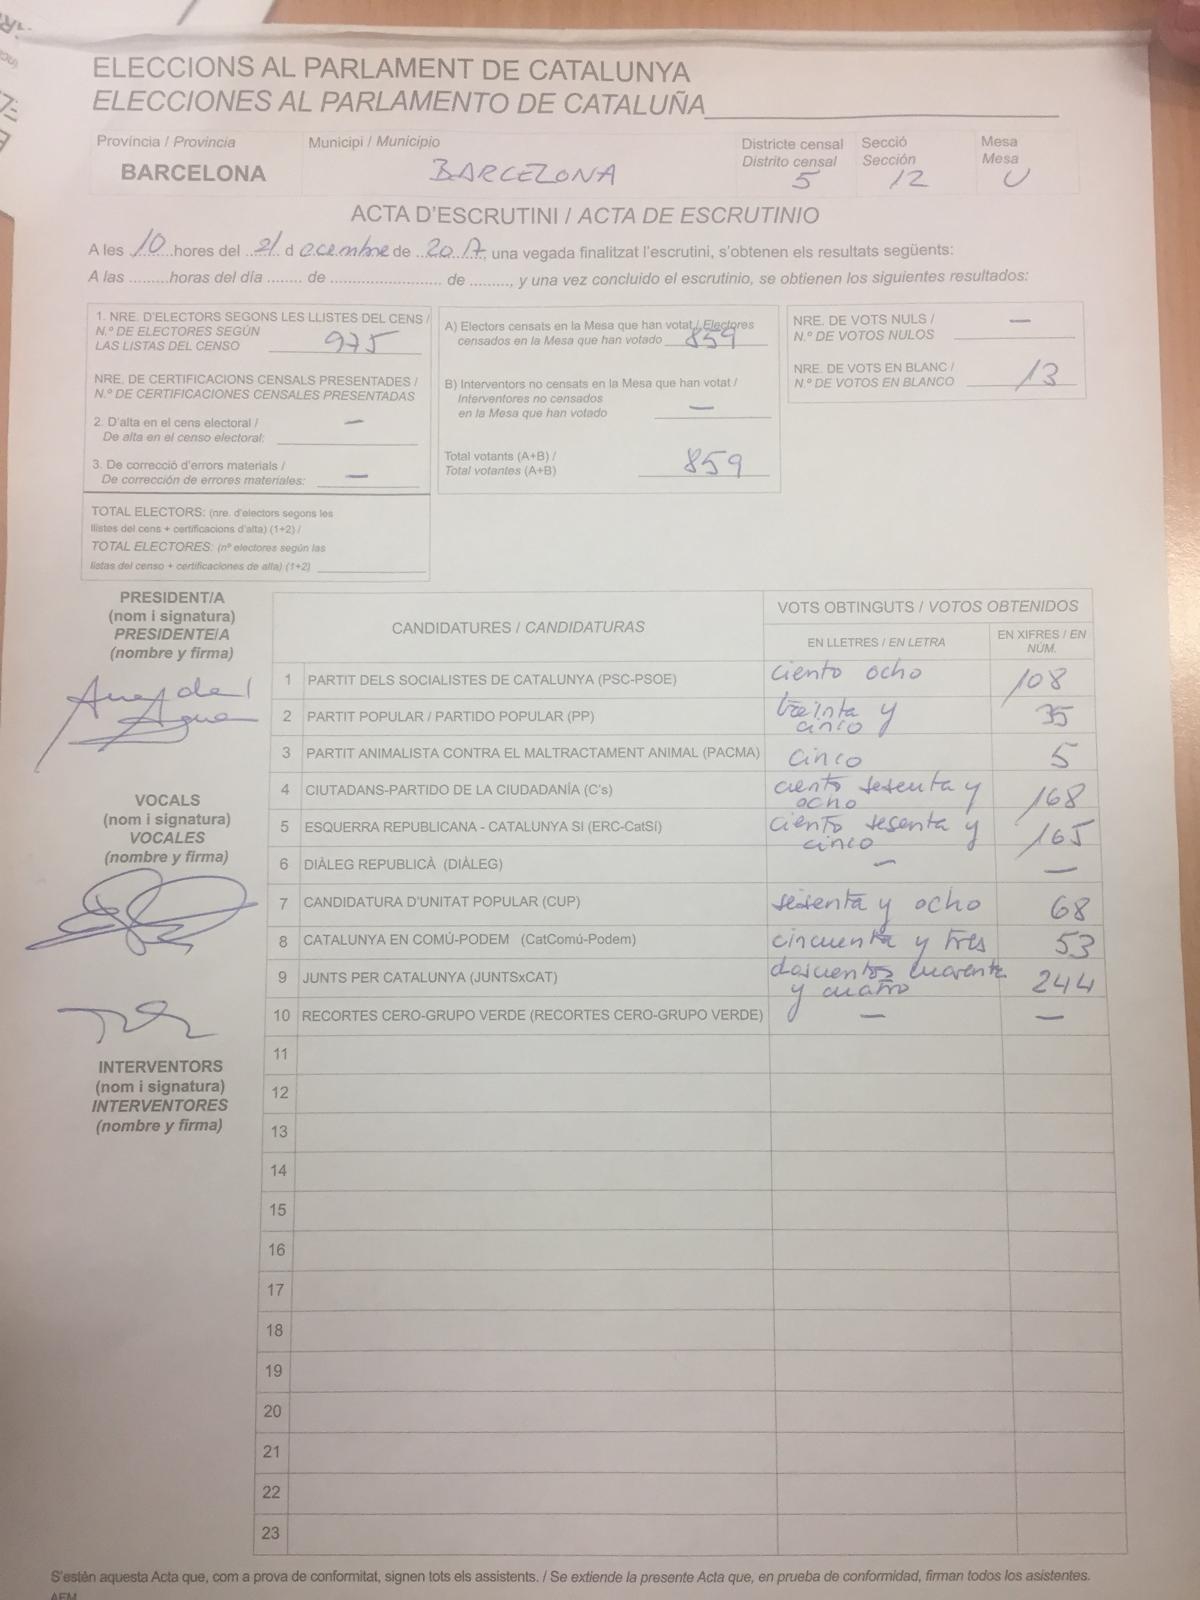 ELECCIONS AL PARLAMENT DE CATALUNYA
ELECCIONES AL PARLAMENTO DE CATALUÑA
Província / Provincia
BARCELONA
Municipi / Municipio
BARCELONA
Districte censal
Distrito censal
5
Secció
Sección
12
Mesa
Mesa
U
ACTA D'ESCRUTINI / ACTA DE ESCRUTINIO
A les 10 hores del 21 d ecembre de 2017, una vegada finalitzat l'escrutini, s'obtenen els resultats següents:
A las .........horas del día ....... de ........................ de ........., y una vez concluido el escrutinio, se obtienen los siguientes resultados:
1. NRE. D'ELECTORS SEGONS LES LLISTES DEL CENS /
N.º DE ELECTORES SEGÚN
LAS LISTAS DEL CENSO 975
NRE. DE CERTIFICACIONS CENSALS PRESENTADES /
N.º DE CERTIFICACIONES CENSALES PRESENTADAS
2. D'alta en el cens electoral / —
De alta en el censo electoral:
3. De correcció d'errors materials /
De corrección de errores materiales: —
TOTAL ELECTORS: (nre. d'electors segons les
llistes del cens + certificacions d'alta) (1+2) /
TOTAL ELECTORES: (nº electores según las
listas del censo + certificaciones de alta) (1+2)
A) Electors censats en la Mesa que han votat / Electores
censados en la Mesa que han votado 859
B) Interventors no censats en la Mesa que han votat /
Interventores no censados
en la Mesa que han votado —
Total votants (A+B) /
Total votantes (A+B) 859
NRE. DE VOTS NULS / —
N.º DE VOTOS NULOS
NRE. DE VOTS EN BLANC /
N.º DE VOTOS EN BLANCO 13
PRESIDENT/A
(nom i signatura)
PRESIDENTE/A
(nombre y firma)
VOCALS
(nom i signatura)
VOCALES
(nombre y firma)
INTERVENTORS
(nom i signatura)
INTERVENTORES
(nombre y firma)
CANDIDATURES / CANDIDATURAS
VOTS OBTINGUTS / VOTOS OBTENIDOS
EN LLETRES / EN LETRA
EN XIFRES / EN
NÚM.
1 PARTIT DELS SOCIALISTES DE CATALUNYA (PSC-PSOE) ciento ocho 108
2 PARTIT POPULAR / PARTIDO POPULAR (PP) treinta y cinco 35
3 PARTIT ANIMALISTA CONTRA EL MALTRACTAMENT ANIMAL (PACMA) cinco 5
4 CIUTADANS-PARTIDO DE LA CIUDADANÍA (C's) ciento sesenta y ocho 168
5 ESQUERRA REPUBLICANA - CATALUNYA SI (ERC-CatSí) ciento sesenta y cinco 165
6 DIÀLEG REPUBLICÀ (DIÀLEG) — —
7 CANDIDATURA D'UNITAT POPULAR (CUP) sesenta y ocho 68
8 CATALUNYA EN COMÚ-PODEM (CatComú-Podem) cincuenta y tres 53
9 JUNTS PER CATALUNYA (JUNTSxCAT) doscuentos cuarenta y cuatro 244
10 RECORTES CERO-GRUPO VERDE (RECORTES CERO-GRUPO VERDE) — —
11
12
13
14
15
16
17
18
19
20
21
22
23
S'estén aquesta Acta que, com a prova de conformitat, signen tots els assistents. / Se extiende la presente Acta que, en prueba de conformidad, firman todos los asistentes.